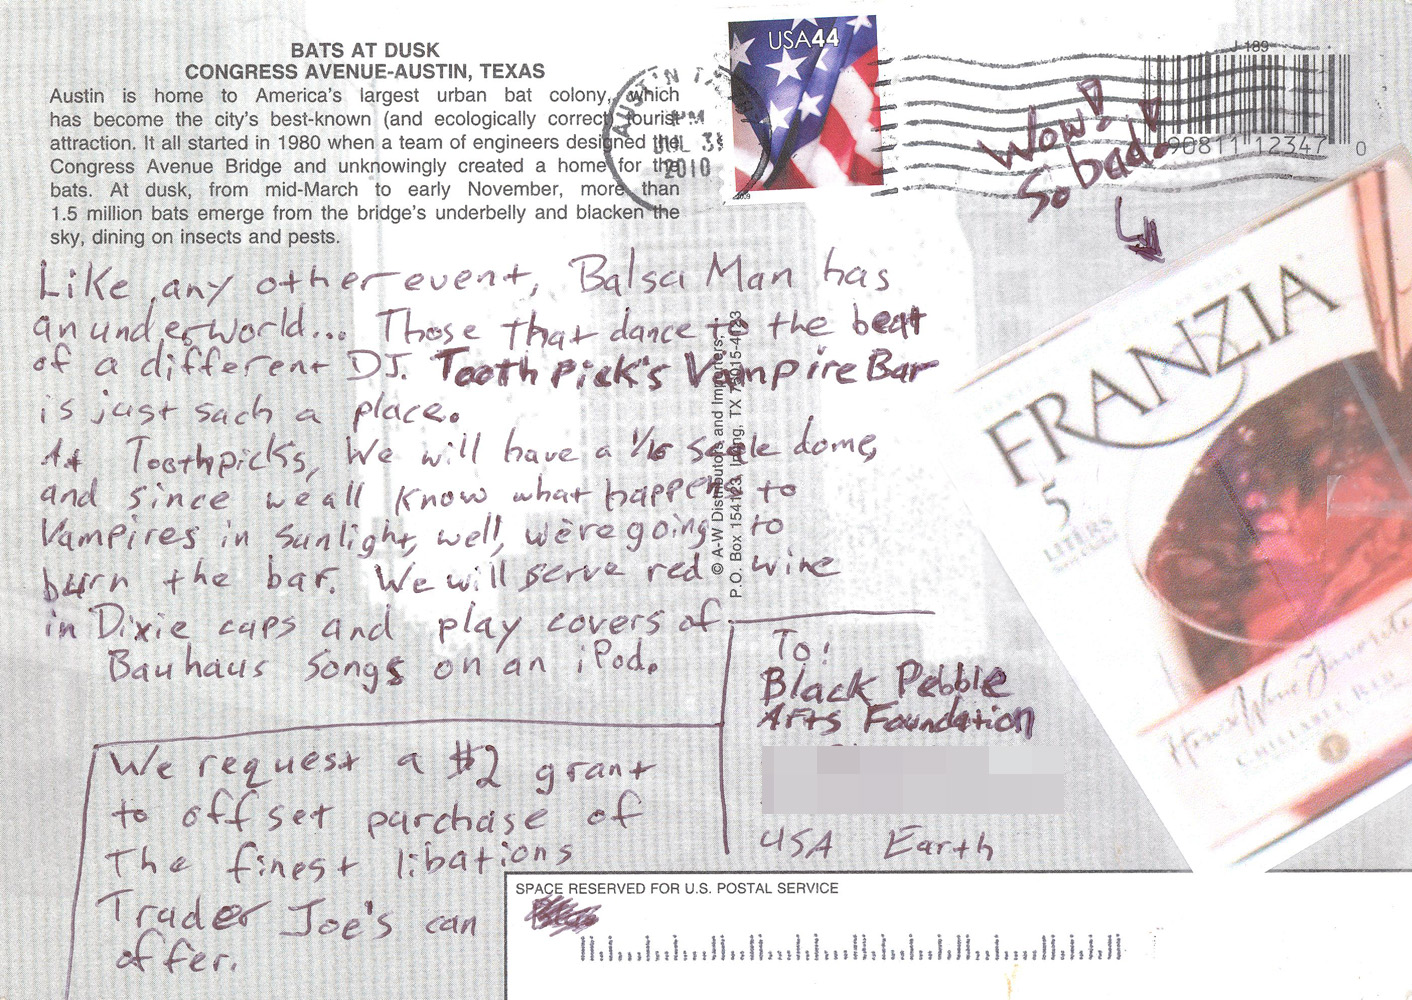 BATS AT DUSK
CONGRESS AVENUE-AUSTIN, TEXAS
Austin is home to America's largest urban bat colony, which
has become the city's best-known (and ecologically correct) tourist
attraction. It all started in 1980 when a team of engineers designed the
Congress Avenue Bridge and unknowingly created a home for the
bats. At dusk, from mid-March to early November, more than
1.5 million bats emerge from the bridge's underbelly and blacken the
sky, dining on insects and pests.
AUSTIN
PM
2010
USA44
J 189
90811 12347 0
Wow!
So bad!
Like any other event, Balsa Man has
an underworld... Those that dance to the beat
of a different DJ. Toothpick's Vampire Bar
is just such a place.
At Toothpicks, We will have a 1/10 scale dome,
and since we all know what happens to
Vampires in sunlight, well, we're going to
burn the bar. We will serve red wine
in Dixie cups and play covers of
Bauhaus songs on an iPod.
We request a $2 grant
to offset purchase of
The finest libations
Trader Joe's can
offer.
© A-W Distributors and Importers,
P.O. Box 154123, Irving, TX
To:
Black Pebble
Arts Foundation
USA Earth
FRANZIA
5
LITERS
House Wine Favorite
CHILLABLE RED
SPACE RESERVED FOR U.S. POSTAL SERVICE